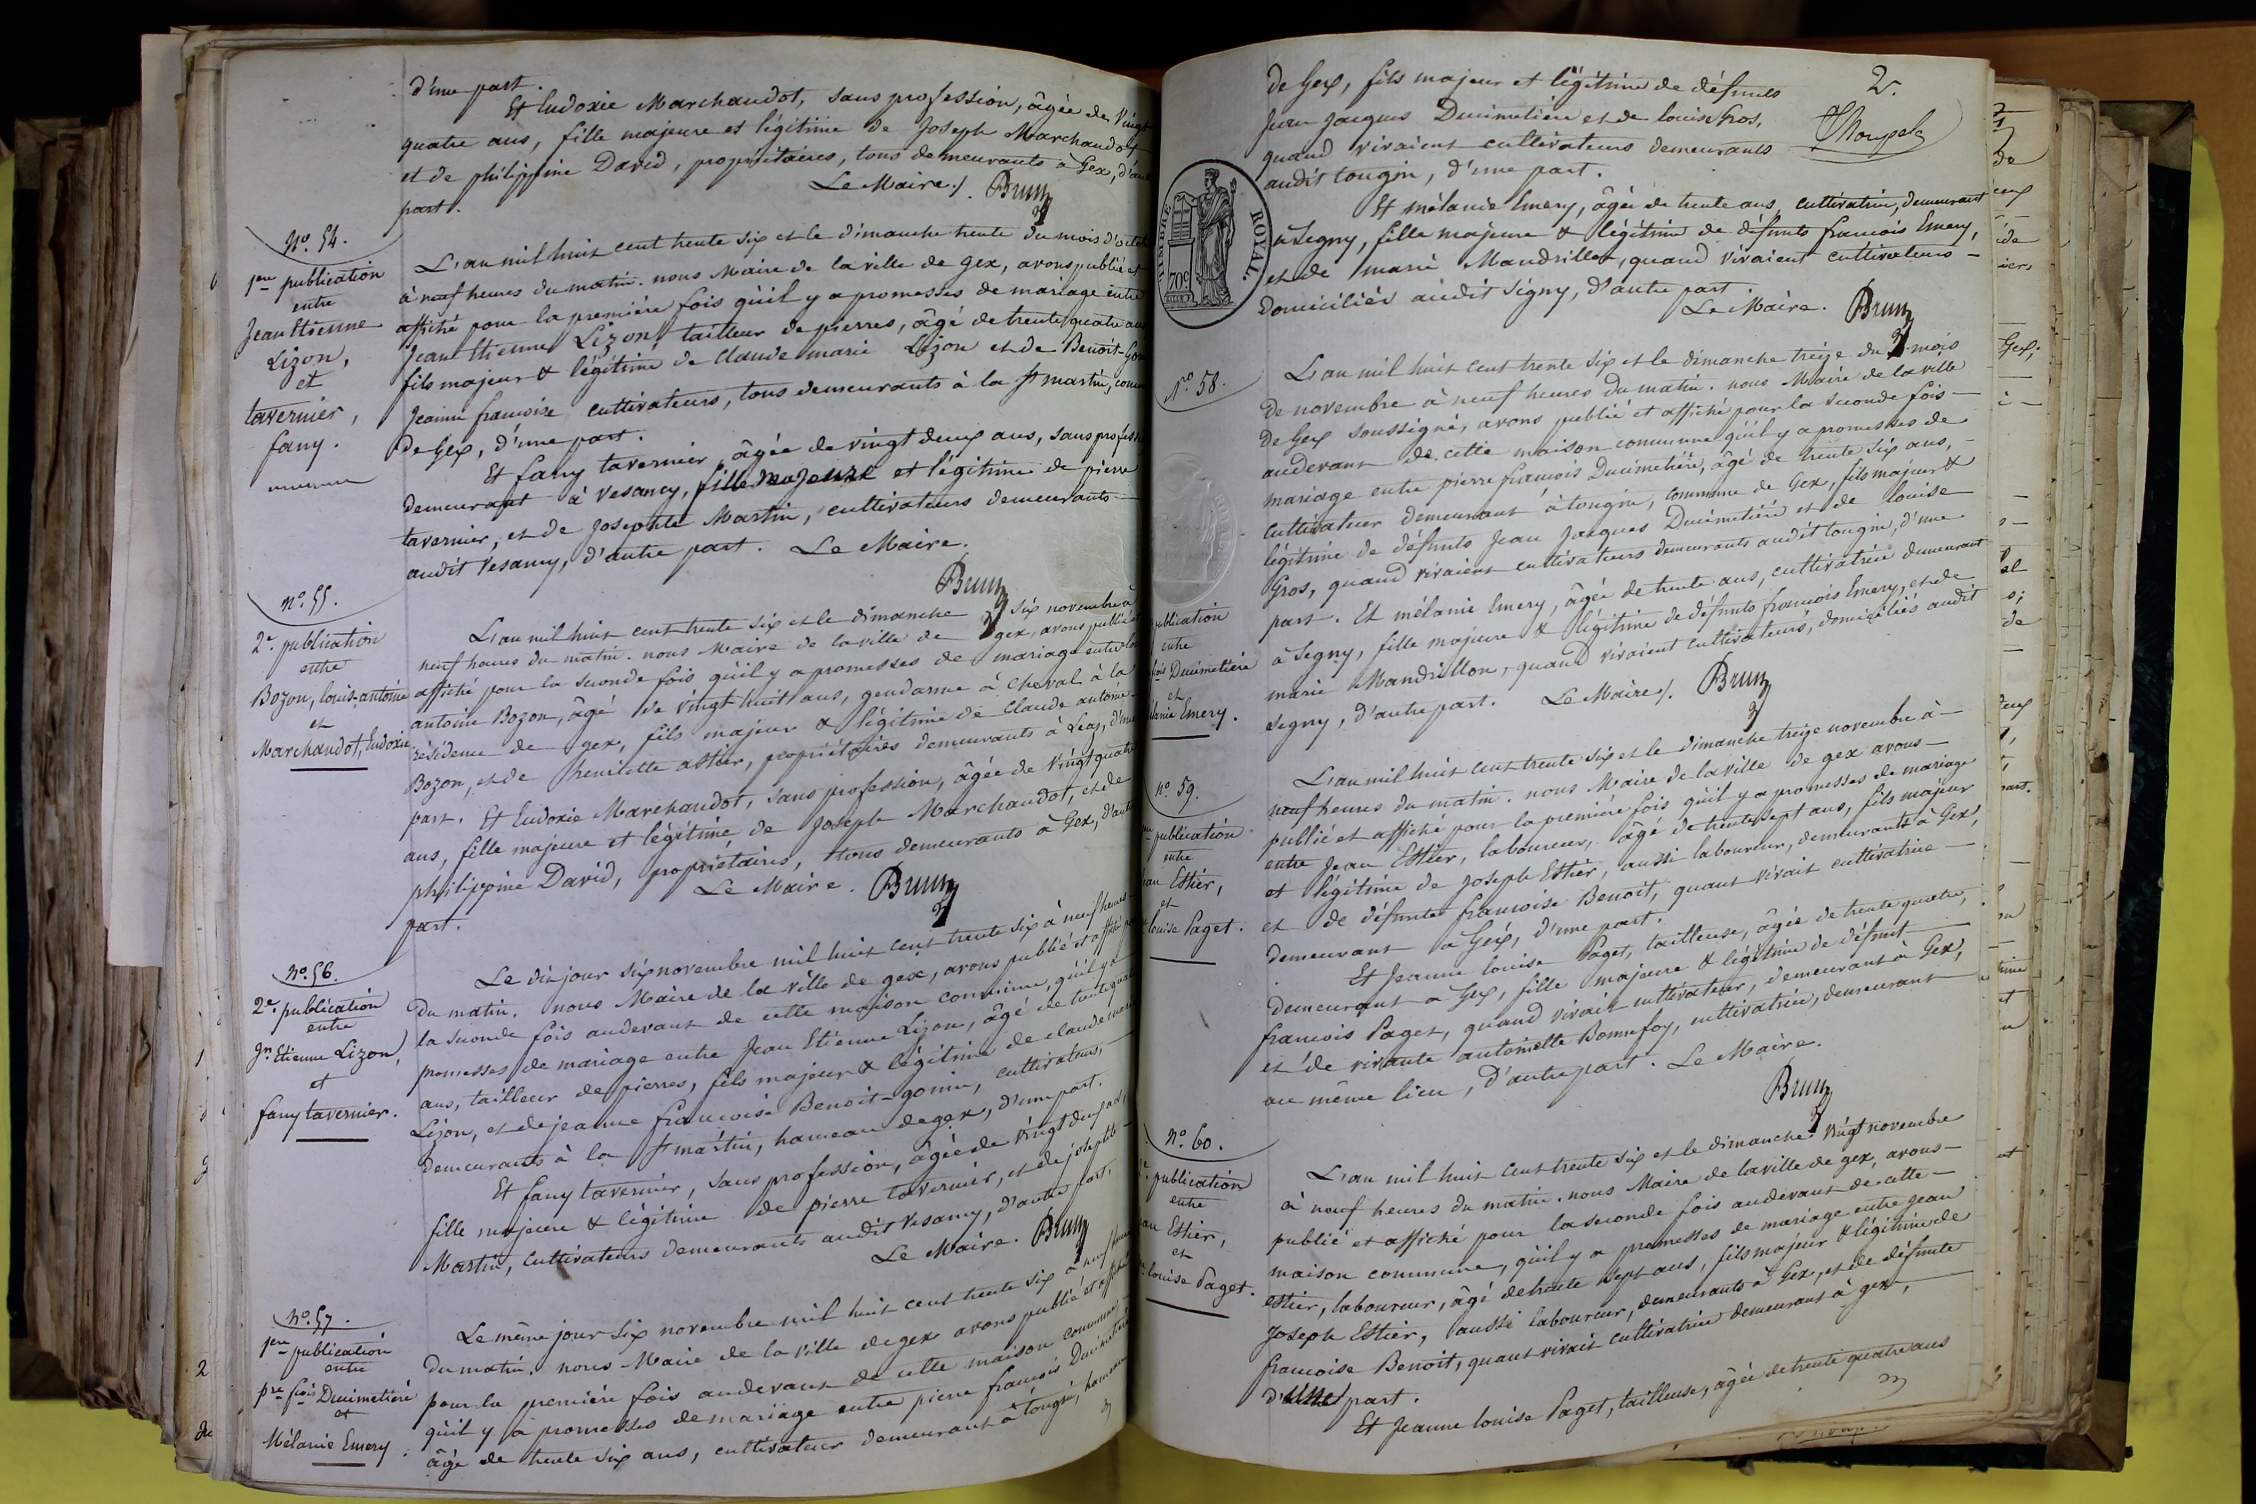 d'une part.
Et Eudoxie Marchandot, sans profession, âgée de Vingt
quatre ans, fille majeure et légitime de Joseph Marchandot
et de philippine David, propriétaires, tous demeurants à Gex, d'autre
part.
Le Maire./. Brun
No. 54.
1ere publication
entre
Jean Etienne
Lizon,
et
tavernier,
fany.
L'an mil huit cent trente six et le dimanche trente du mois d'octobre
à neuf heures du matin. nous Maire de la ville de gex, avons publié et
affiché pour la première fois qu'il y a promesses de mariage entre
Jean Etienne Lizon, tailleur de pierres, âgé de trente quatre ans
fils majeur & légitime de Claude marie Lizon et de Benoit-Gonin
Jeanne françoise cultivateurs, tous demeurants à la St martin, commune
de Gex, d'une part.
Et fany tavernier, âgée de vingt deux ans, sans profession
demeurant à Vesancy, fille majeure et légitime de pierre
tavernier, et de Josephte Martin, cultivateurs demeurants
audit Vesancy, d'autre part. Le Maire.
Brun
No. 55.
2e. publication
entre
Bozon, louis-antoine
et
Marchandot, Eudoxie
L'an mil huit cent trente six et le dimanche six novembre à
neuf heures du matin. nous Maire de la ville de gex, avons publié et
affiché pour la seconde fois qu'il y a promesses de mariage entre louis
antoine Bozon, âgé de vingt huit ans, gendarme à cheval à la
résidence de gex, fils majeur & légitime de Claude antoine
Bozon, et de henriette astier, propriétaires demeurants à Leaz, d'une
part. Et Eudoxie Marchandot, sans profession, âgée de Vingt quatre
ans, fille majeure et légitime de Joseph Marchandot, et de
philippine David, propriétaires, tous demeurants à Gex, d'autre
part.
Le Maire. Brun
No. 56.
2e. publication
entre
Jn Etienne Lizon,
et
fany tavernier.
Le dit jour six novembre mil huit cent trente six à neuf heures
du matin. nous Maire de la ville de gex, avons publié et affiché pour
la seconde fois audevant de cette maison commune, qu'il y a
promesses de mariage entre Jean Etienne Lizon, âgé de trente quatre
ans, tailleur de pierres, fils majeur & légitime de claude marie
Lizon, et de jeanne françoise Benoit-gonin, cultivateurs,
demeurants à la St martin, hameau de gex, d'une part.
Et fany tavernier, sans profession, âgée de vingt deux ans,
fille majeure & légitime de pierre tavernier, et de josephte
Martin, cultivateurs demeurants audit Vesancy, d'autre part.
Le Maire. Brun
No. 57.
1ere publication
entre
pre fois Ducimetière
et
Mélanie Emery.
Le même jour six novembre mil huit cent trente six à neuf heures
du matin. nous Maire de la ville de gex avons publié et affiché
pour la première fois audevant de cette maison commune,
qu'il y a promesses de mariage entre pierre françois Ducimetière
âgé de trente six ans, cultivateur demeurant à tougin, hameau
de Gex, fils majeur et légitime de défunts
Jean Jacques Ducimetière et de louise Gros,
quand vivaient cultivateurs demeurants
audit tougin, d'une part.
2.
TIMBRE ROYAL.
70c
Et mélanie Emery, âgée de trente ans, cultivatrice, demeurant
à Segny, fille majeure & légitime de défunts françois Emery,
et de marie Mandrillon, quand vivaient cultivateurs
domiciliés audit Segny, d'autre part
Le Maire. Brun
No. 58.
publication
entre
fois Ducimetière
et
Mélanie Emery.
L'an mil huit cent trente six et le dimanche treize du mois
de novembre à neuf heures du matin. nous Maire de la ville
de Gex soussigné, avons publié et affiché pour la seconde fois
audevant de cette maison commune qu'il y a promesses de
mariage entre pierre françois Ducimetière, âgé de trente six ans,
cultivateur demeurant à tougin, commune de Gex, fils majeur &
légitime de défunts Jean Jacques Ducimetière et de louise
Gros, quand vivaient cultivateurs demeurants audit tougin, d'une
part. Et mélanie Emery, âgée de trente ans, cultivatrice demeurant
à Segny, fille majeure & légitime de défunts françois Emery, et de
marie Mandrillon, quand vivaient cultivateurs, domiciliés audit
Segny, d'autre part. Le Maire./. Brun
No. 59.
publication
entre
Jean Estier,
et
louise Paget.
L'an mil huit cent trente six et le dimanche treize novembre à
neuf heures du matin. nous Maire de la ville de gex avons
publié et affiché pour la première fois qu'il y a promesses de mariage
entre Jean Estier, laboureur, âgé de trente sept ans, fils majeur
et légitime de Joseph Estier, aussi laboureur, demeurants à Gex,
et de défunte françoise Benoit, quant vivait cultivatrice
demeurant à Gex, d'une part.
Et Jeanne louise Paget, tailleuse, âgée de trente quatre,
demeurant à Gex, fille majeure & légitime de défunt
françois Paget, quand vivait cultivateur, demeurant à Gex,
et de vivante antoinette Bonnefoy, cultivatrice, demeurant
au même lieu, d'autre part. Le Maire.
Brun
No. 60.
publication
entre
Jean Estier,
et
louise Paget.
L'an mil huit cent trente six et le dimanche vingt novembre
à neuf heures du matin. nous Maire de la ville de gex, avons
publié et affiché pour la seconde fois audevant de cette
maison commune, qu'il y a promesses de mariage entre Jean
estier, laboureur, âgé de trente sept ans, fils majeur & légitime de
Joseph Estier, aussi laboureur, demeurants à Gex, et de défunte
françoise Benoit, quant vivait cultivatrice demeurant à gex,
d'une part.
Et Jeanne louise Paget, tailleuse, âgée de trente quatre ans